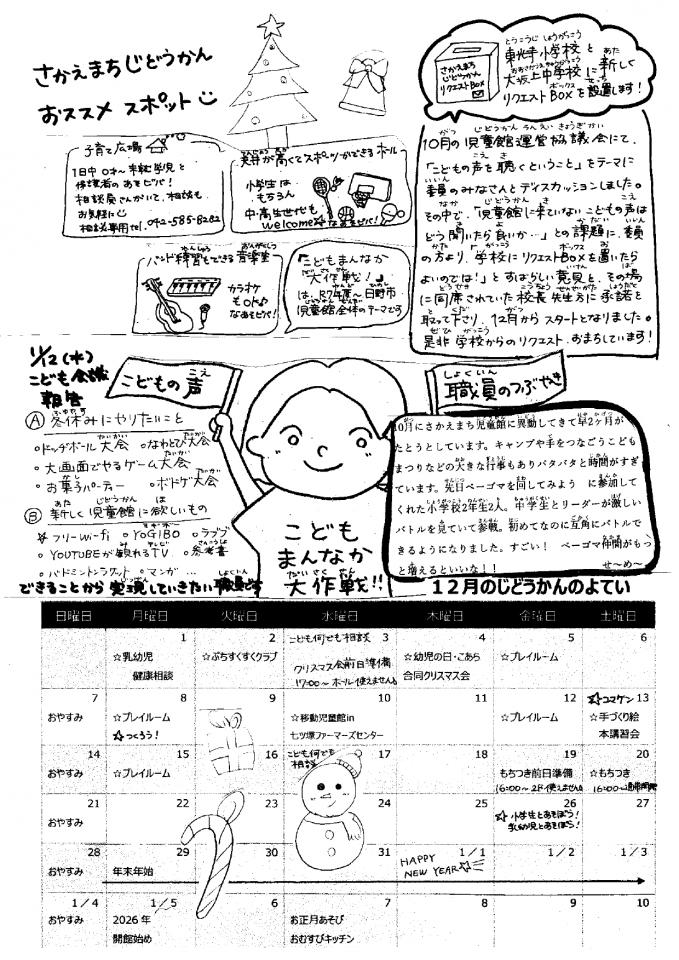 さかえまちじどうかん
おススメ スポット
さかえまち
じどうかん
リクエストBox
東光寺小学校と
大坂上中学校に新しく
リクエストBoxを設置します!
子育て広場
1日中 0才〜未就学児と
保護者のあそビバ!
相談員さんがいて、相談も
お気軽に
相談専用tel. 042-585-8282
天井が高くてスポーツができるホール
小学生は
もちろん
中・高生世代も
welcome☆なあそビバ!
バンド練習もできる音楽室
カラオケ
もOK♪
なあそビバ!
「こどもまんなか
大作戦!」
は、R7年度〜日野市
児童館全体のテーマです
10月の児童館運営協議会にて、
「こどもの声を聴くということ」をテーマに
委員のみなさんとディスカッションしました。
その中で、「児童館に来ていないこどもの声は
どう聞いたら良いか…」との課題に、委員
の方より、「学校にリクエストBoxを置いたら
よいのでは!」とすばらしい意見と、その場
に同席されていた校長先生方に承諾を
取って下さり、12月からスタートとなりました。
是非学校からのリクエスト、おまちしています!
11/12(水)
こども会議
報告
こどもの声
Ⓐ 冬休みにやりたいこと
○ドッヂボール大会 ○なわとび大会
・大画面でやるゲーム大会
・お菓子パーティー ・ボドゲ大会
Ⓑ 新しく児童館に欲しいもの
☆フリーWi-fi ○YOGIBO ○ラブブ
○YOUTUBEが観れるTV ○参考書
○バドミントンラケット ○マンガ…
できることから実現していきたい職員です
こども
まんなか
大作戦!!
職員のつぶやき
10月にさかえまち児童館に異動してきて早2ヶ月が
たとうとしています。キャンプや手をつなごうこども
まつりなどの大きな行事もありバタバタと時間がすぎ
ています。先日ベーゴマを回してみよう に参加して
くれた小学校2年生2人。中学生とリーダーが激しい
バトルを見ていて参戦。初めてなのに互角にバトルで
きるようになりました。すごい! ベーゴマ仲間がもっ
と増えるといいな!! せ〜め〜
12月のじどうかんのよてい
日曜日 月曜日 火曜日 水曜日 木曜日 金曜日 土曜日
1 2 こども何でも相談 3 4 5 6
☆乳幼児 ☆ぷちすくすくクラブ クリスマス会前日準備 ☆幼児の日・こあら ☆プレイルーム
健康相談 17:00〜ホール使えません 合同クリスマス会
7 8 9 10 11 12 ☆コマゲン 13
おやすみ ☆プレイルーム ☆移動児童館in ☆プレイルーム ☆手づくり絵
☆つくろう! 七ツ塚ファーマーズセンター 本講習会
14 15 16 こども何でも相談 17 18 19 20
おやすみ ☆プレイルーム もちつき前日準備 ☆もちつき
16:00〜2F使えません 16:00〜通常開館
21 22 23 24 25 26 27
おやすみ ☆小学生とあそぼう!
乳幼児とあそぼう!
28 29 30 31 1/1 1/2 1/3
おやすみ 年末年始 HAPPY
NEW YEAR☆
1/4 1/5 6 7 8 9 10
おやすみ 2026年 お正月あそび
開館始め おむすびキッチン